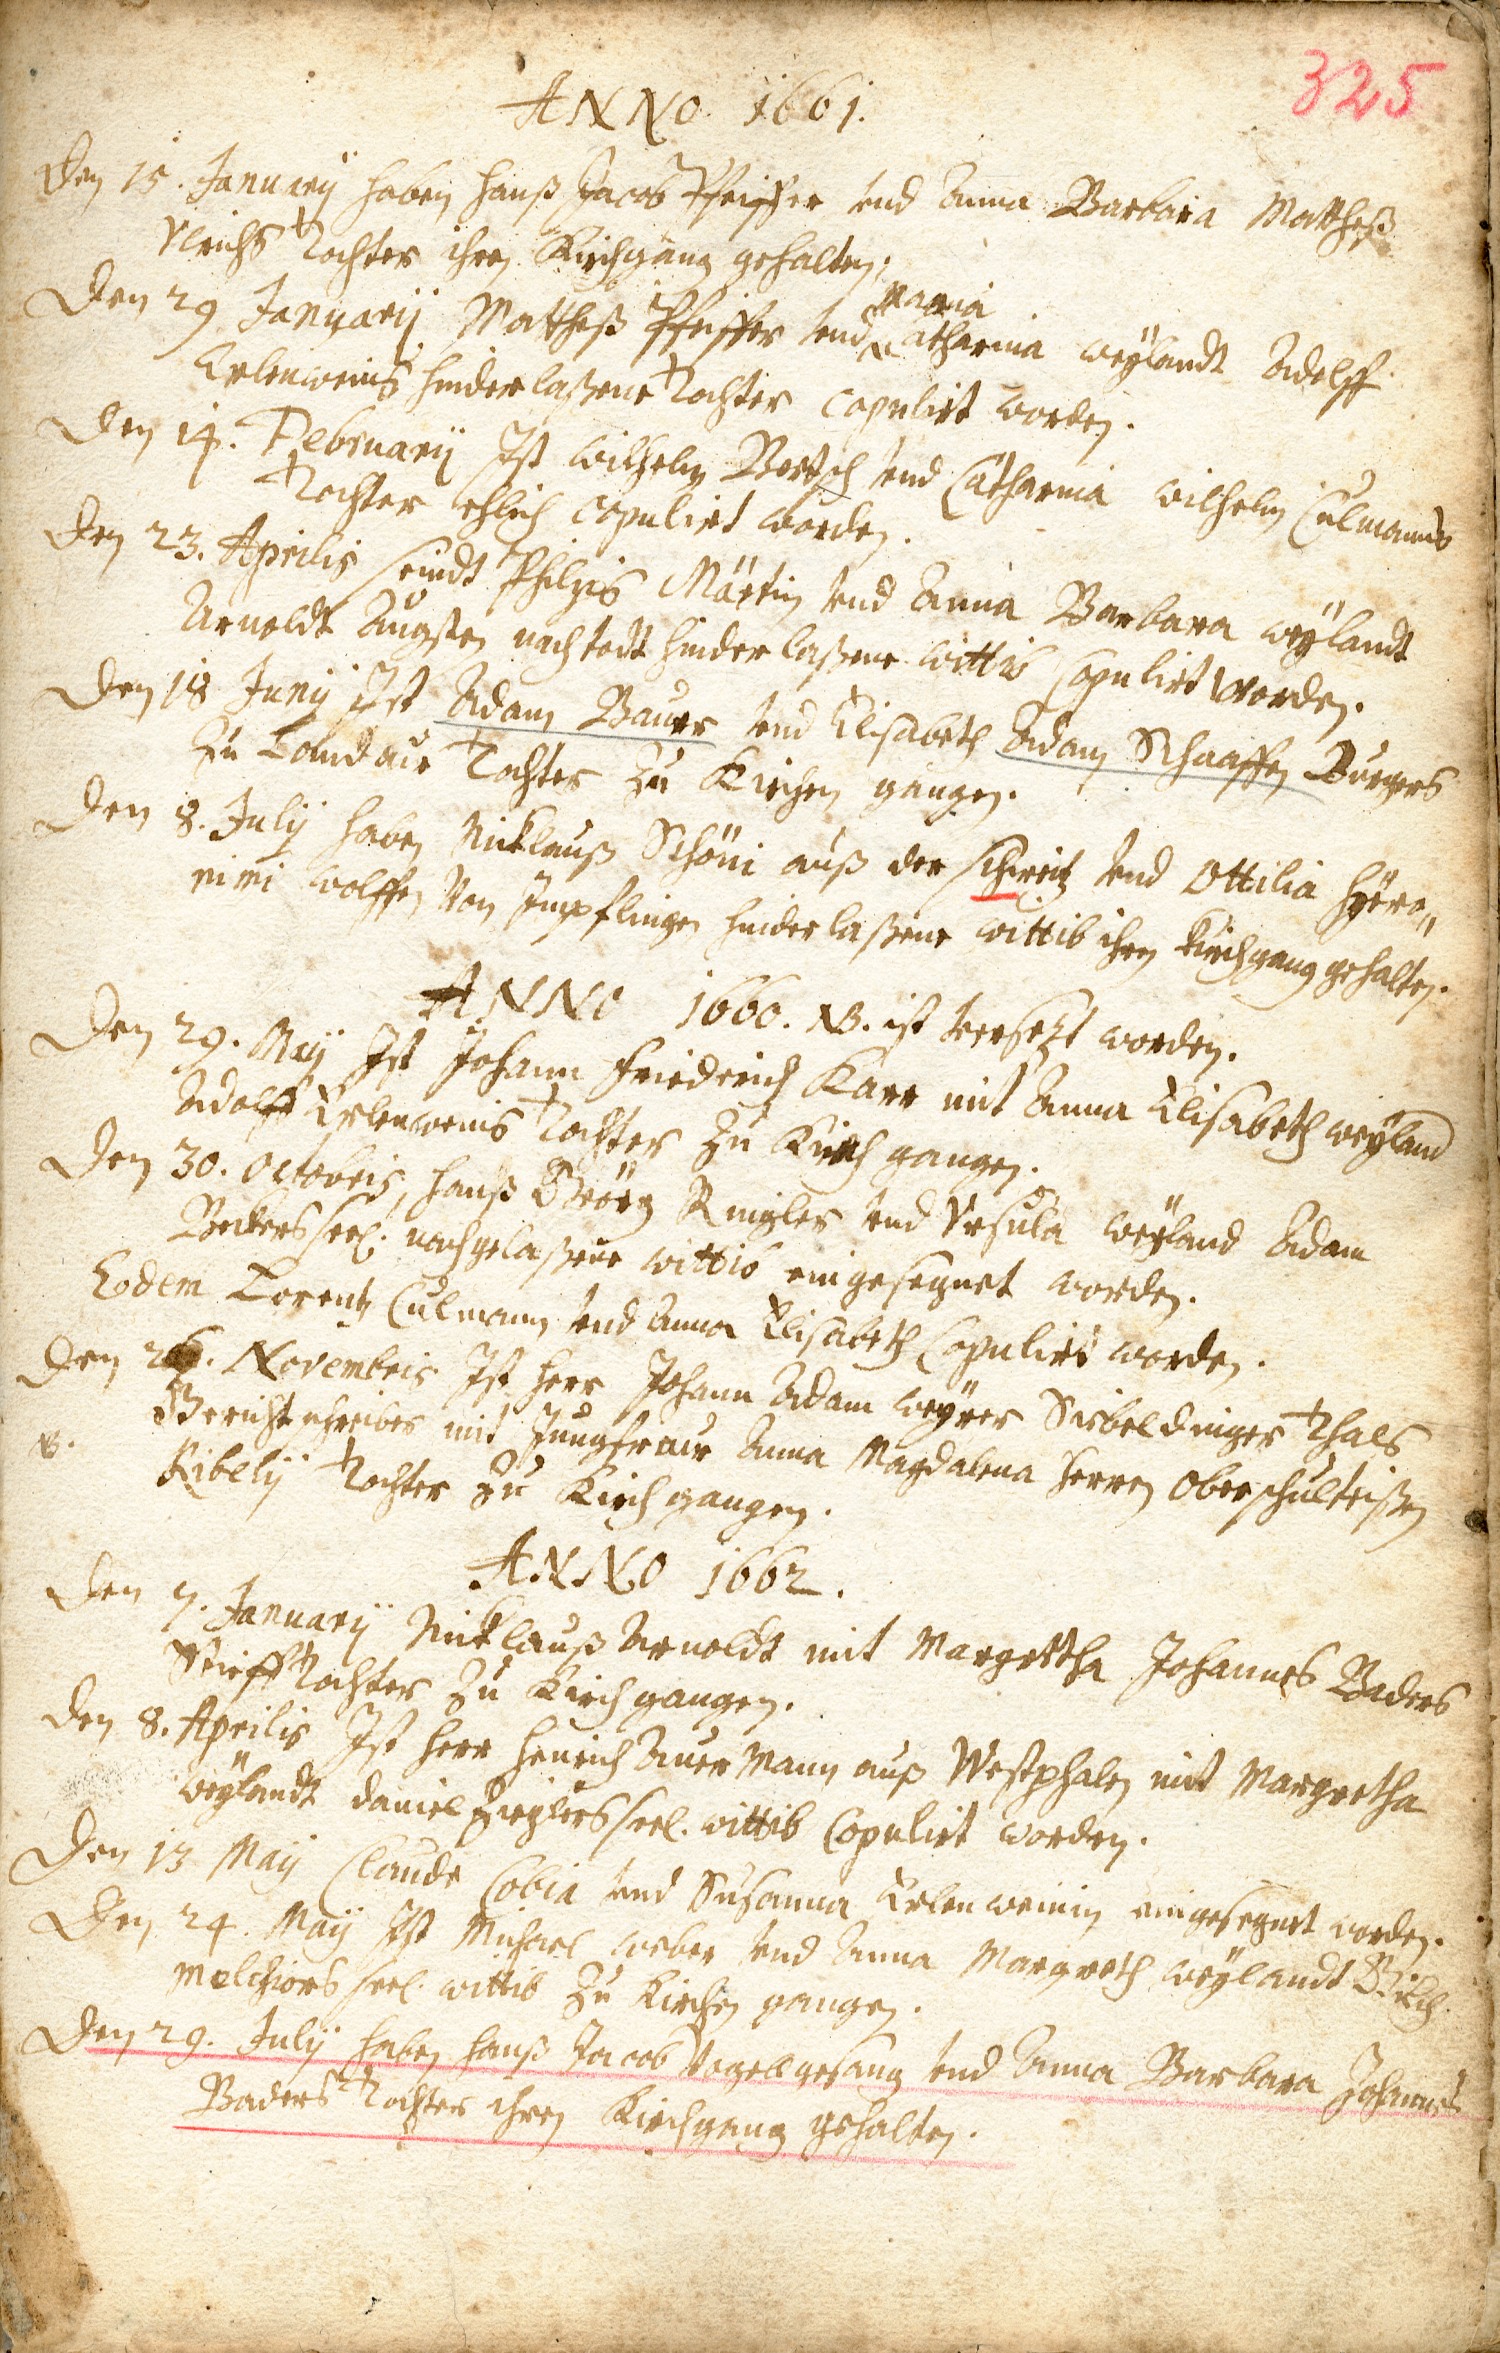 325
ANNO 1661.
Den 15. Januarij haben Hanß Jacob Pfeiffer vnd Anna Barbara Mattheß
Vlrichs Tochter ihren Kirchgang gehalten.
Maria
Den 29 Januarij Mattheß Pfeiffer vnd Catharina weÿlandt Adolff
Erlenweins hinderlaßene Tochter copulirt worden.
Den 14. Februarij Ist Wilhelm Bertsch vnd Catharina Wilhelm Culmanns
Tochter ehlich copulirt worden.
Den 23. Aprilis seindt Philips Märtin vnd Anna Barbara weÿlandt
Arnoldt Augsten nachtodt hinderlaßene Wittib Copulirt worden.
Den 18 Junij Ist Adam Baurr vnd Elisabeth Adam Schaaffen Burgers
Zu Landaue Tochter Zu Kirchen gangen.
Den 8. Julij haben Nicklauß Schöni auß der Schweitz vnd Ottilia Hÿero„
nimi Wolffen Von Impflingen hinderlaßene Wittib ihren Kirchgang gehalten.
ANNO 1660. NB. ist versetzt worden.
Den 29. Maij Ist Johann Friederich Karr mit Anna Elisabeth weÿland
Adolff Erlenweins Tochter Zu Kirch gangen.
Den 30. Octobris, Hanß Geörg Ringler vnd Vrsula weÿland Adam
Beckers seel. nachgelaßene Wittib eingesegnet worden.
Eodem Lorentz Culmann vnd Anna Elisabeth Copulirt worden.
Den Novembris Ist Herr Johann Adam Weÿrer Sirbeldinger Thals
Gerichtschreiber mit Jungfraur Anna Magdalena Herren Oberschulteißen
NB. Kibelij Tochter Zu Kirch gangen.
ANNO 1662.
Den 7. Januarij Nicklauß Arnoldt mit Margretha Johannes Baders
Stieff Tochter Zu Kirch gangen.
Den 8. Aprilis Ist Herr Henrich Auermann auß Westphalen mit Margretha
weÿlandt Daniel Zieglers seel. Wittib Copulirt worden.
Den 13 Maij Claude Cobia vnd Susanna Erlenweinin eingesegnet worden.
Den 24. Maij Ist Michael Weber vnd Anna Margreth weÿlandt
Melchiors seel. Wittib Zu Kirchen gangen.
Den 29. Julij haben Hanß Jacob Vogellgesang vnd Anna Barbara Johannes
Baders Tochter ihren Kirchgang gehalten.